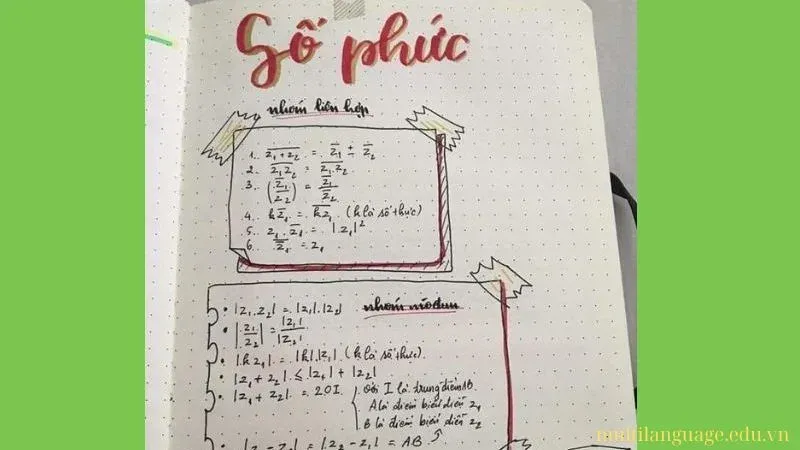 Số phức
nhóm liên hợp
1. \overline{z₁ + z₂} = \overline{z₁} ± \overline{z₂}
2. \overline{z₁z₂} = \overline{z₁.z₂}
3. \overline{(z₁/z₂)} = \overline{z₁}/\overline{z₂}
4. k\overline{z₁} = \overline{kz₁} (k là số thực)
5. z₁.\overline{z₁} = |z₁|²
6. \overline{\overline{z₁}} = z₁
nhóm môđun
• |z₁.z₂| = |z₁|.|z₂|
• |z₁/z₂| = |z₁|/|z₂|
• |k z₁| = |k|.|z₁| (k là số thực)
• |z₁ + z₂| ≤ |z₁| + |z₂|
• |z₁ + z₂| = 2OI. Với I là trung điểm AB
A là điểm biểu diễn z₁
B là điểm biểu diễn z₂
• |z₁ - z₂| = |z₂ - z₁| = AB
multilanguage.edu.vn